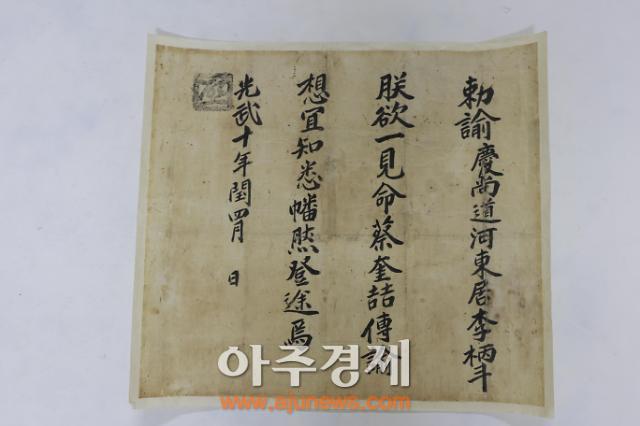 勅諭慶尙道河東居李柄斗
朕欲一見命蔡奎喆傳諭
想宜知悉幡然登途焉
光武十年閏四月 日
아주경제
www.ajunews.com